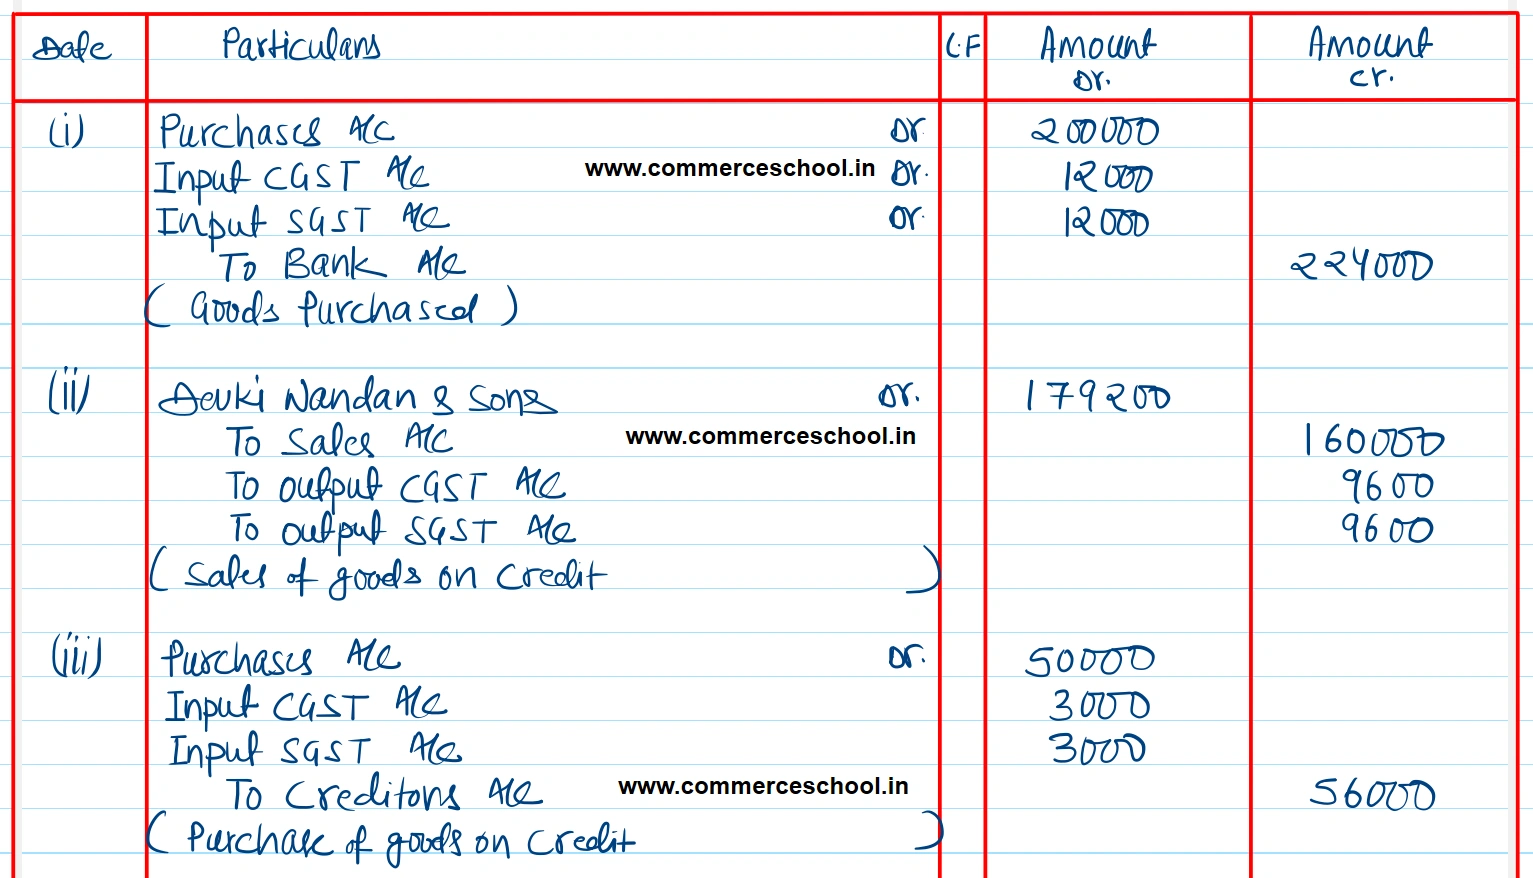 Date Particulars L.F Amount Dr. Amount Cr.
(i) Purchases A/c Dr. 200000
Input CGST A/c www.commerceschool.in Dr. 12000
Input SGST A/c Dr. 12000
To Bank A/c 224000
( Goods Purchased )
(ii) Devki Nandan & Sons Dr. 179200
To Sales A/c www.commerceschool.in 160000
To output CGST A/c 9600
To output SGST A/c 9600
( Sales of goods on Credit )
(iii) Purchases A/c Dr. 50000
Input CGST A/c 3000
Input SGST A/c 3000
To Creditors A/c www.commerceschool.in 56000
( Purchase of goods on Credit )